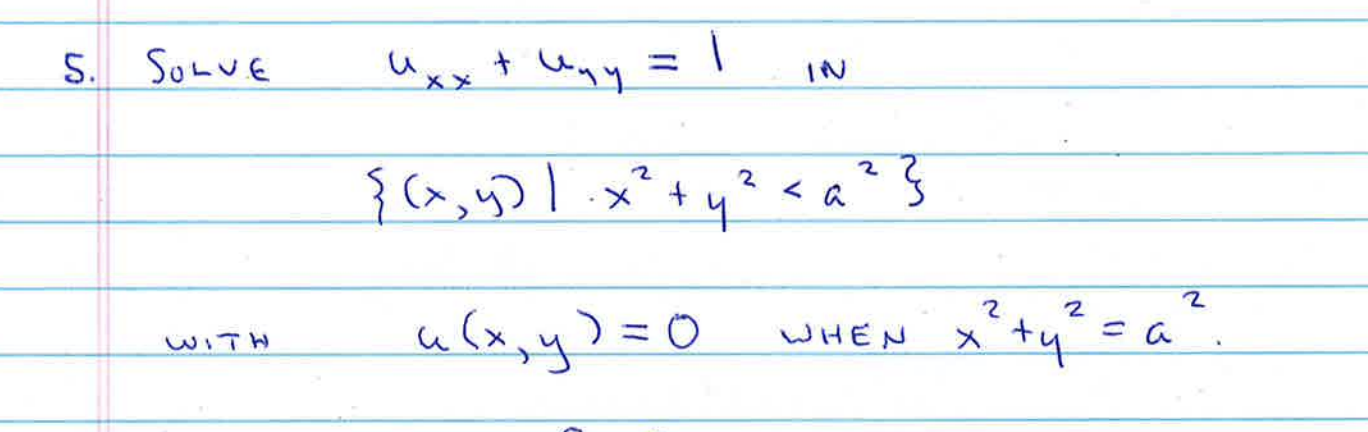 5. SOLVE u_xx + u_yy = 1 IN
{(x,y) | x² + y² < a²}
WITH u(x,y) = 0 WHEN x² + y² = a².